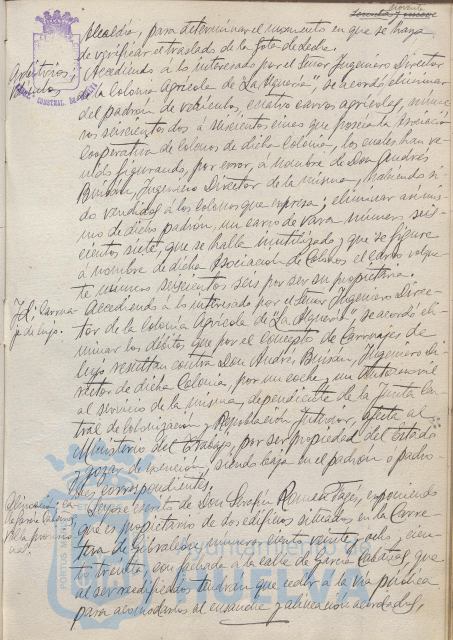 noventa
Sesenta y nueve
Alcaldia, para determinar el momento en que se haya
de verificar el traslado de la Gota de Leche.
Arbitrios:
Vehículos
Accediendo á lo interesado por el Señor Ingeniero Director
de la Colonia Agricola de "La Alquería", se acordó eliminar
del padrón de vehículos, cuatro carros agricolas, núme-
ros seiscientos dos á seiscientos cinco que poseía la Asociación
Cooperativa de Colonos de dicha Colonia, los cuales han ve-
nido figurando, por error, á nombre de Don Andrés
Buisán, Ingeniero Director de la misma, habiendo si-
do vendidos á los Colonos que expresa; eliminar asimis-
mo de dicho padrón, un carro de vara número seis-
cientos siete, que se halla inutilizado y que se figure
á nombre de dicha Asociación de Colonos el carro volque-
te número seiscientos seis por ser su propietaria.
Id: Carrua-
jes de lujo.
Accediendo á lo interesado por el Señor Ingeniero Direc-
tor de la Colonia Agricola de "La Alquería" se acordó eli-
minar los débitos que por el concepto de Carruajes de
lujo resultan contra Don Andrés Buisán, Ingeniero Di-
rector de dicha Colonia, por un coche y un automóvil
al servicio de la misma, dependiente de la Junta Cen-
tral de Colonización y Repoblación Interior, afecta al
Ministerio del Trabajo, por ser propiedad del Estado
y gozar de exención, siendo baja en el padrón ó padro-
nes correspondientes.
Alineación en
de la provincia
Leyóse escrito de Don Serafín Romeu Fages, exponiendo
que es propietario de dos edificios situados en la Carre-
tera de Gibraleón, número ciento veinte y ocho, cien-
to treinta, con fachada á la calle de García Cabañas, que
al ser reedificados tendrán que ceder á la vía pública
para acomodarlos al ensanche y alineación acordados,
Ayuntamiento de
HUELVA